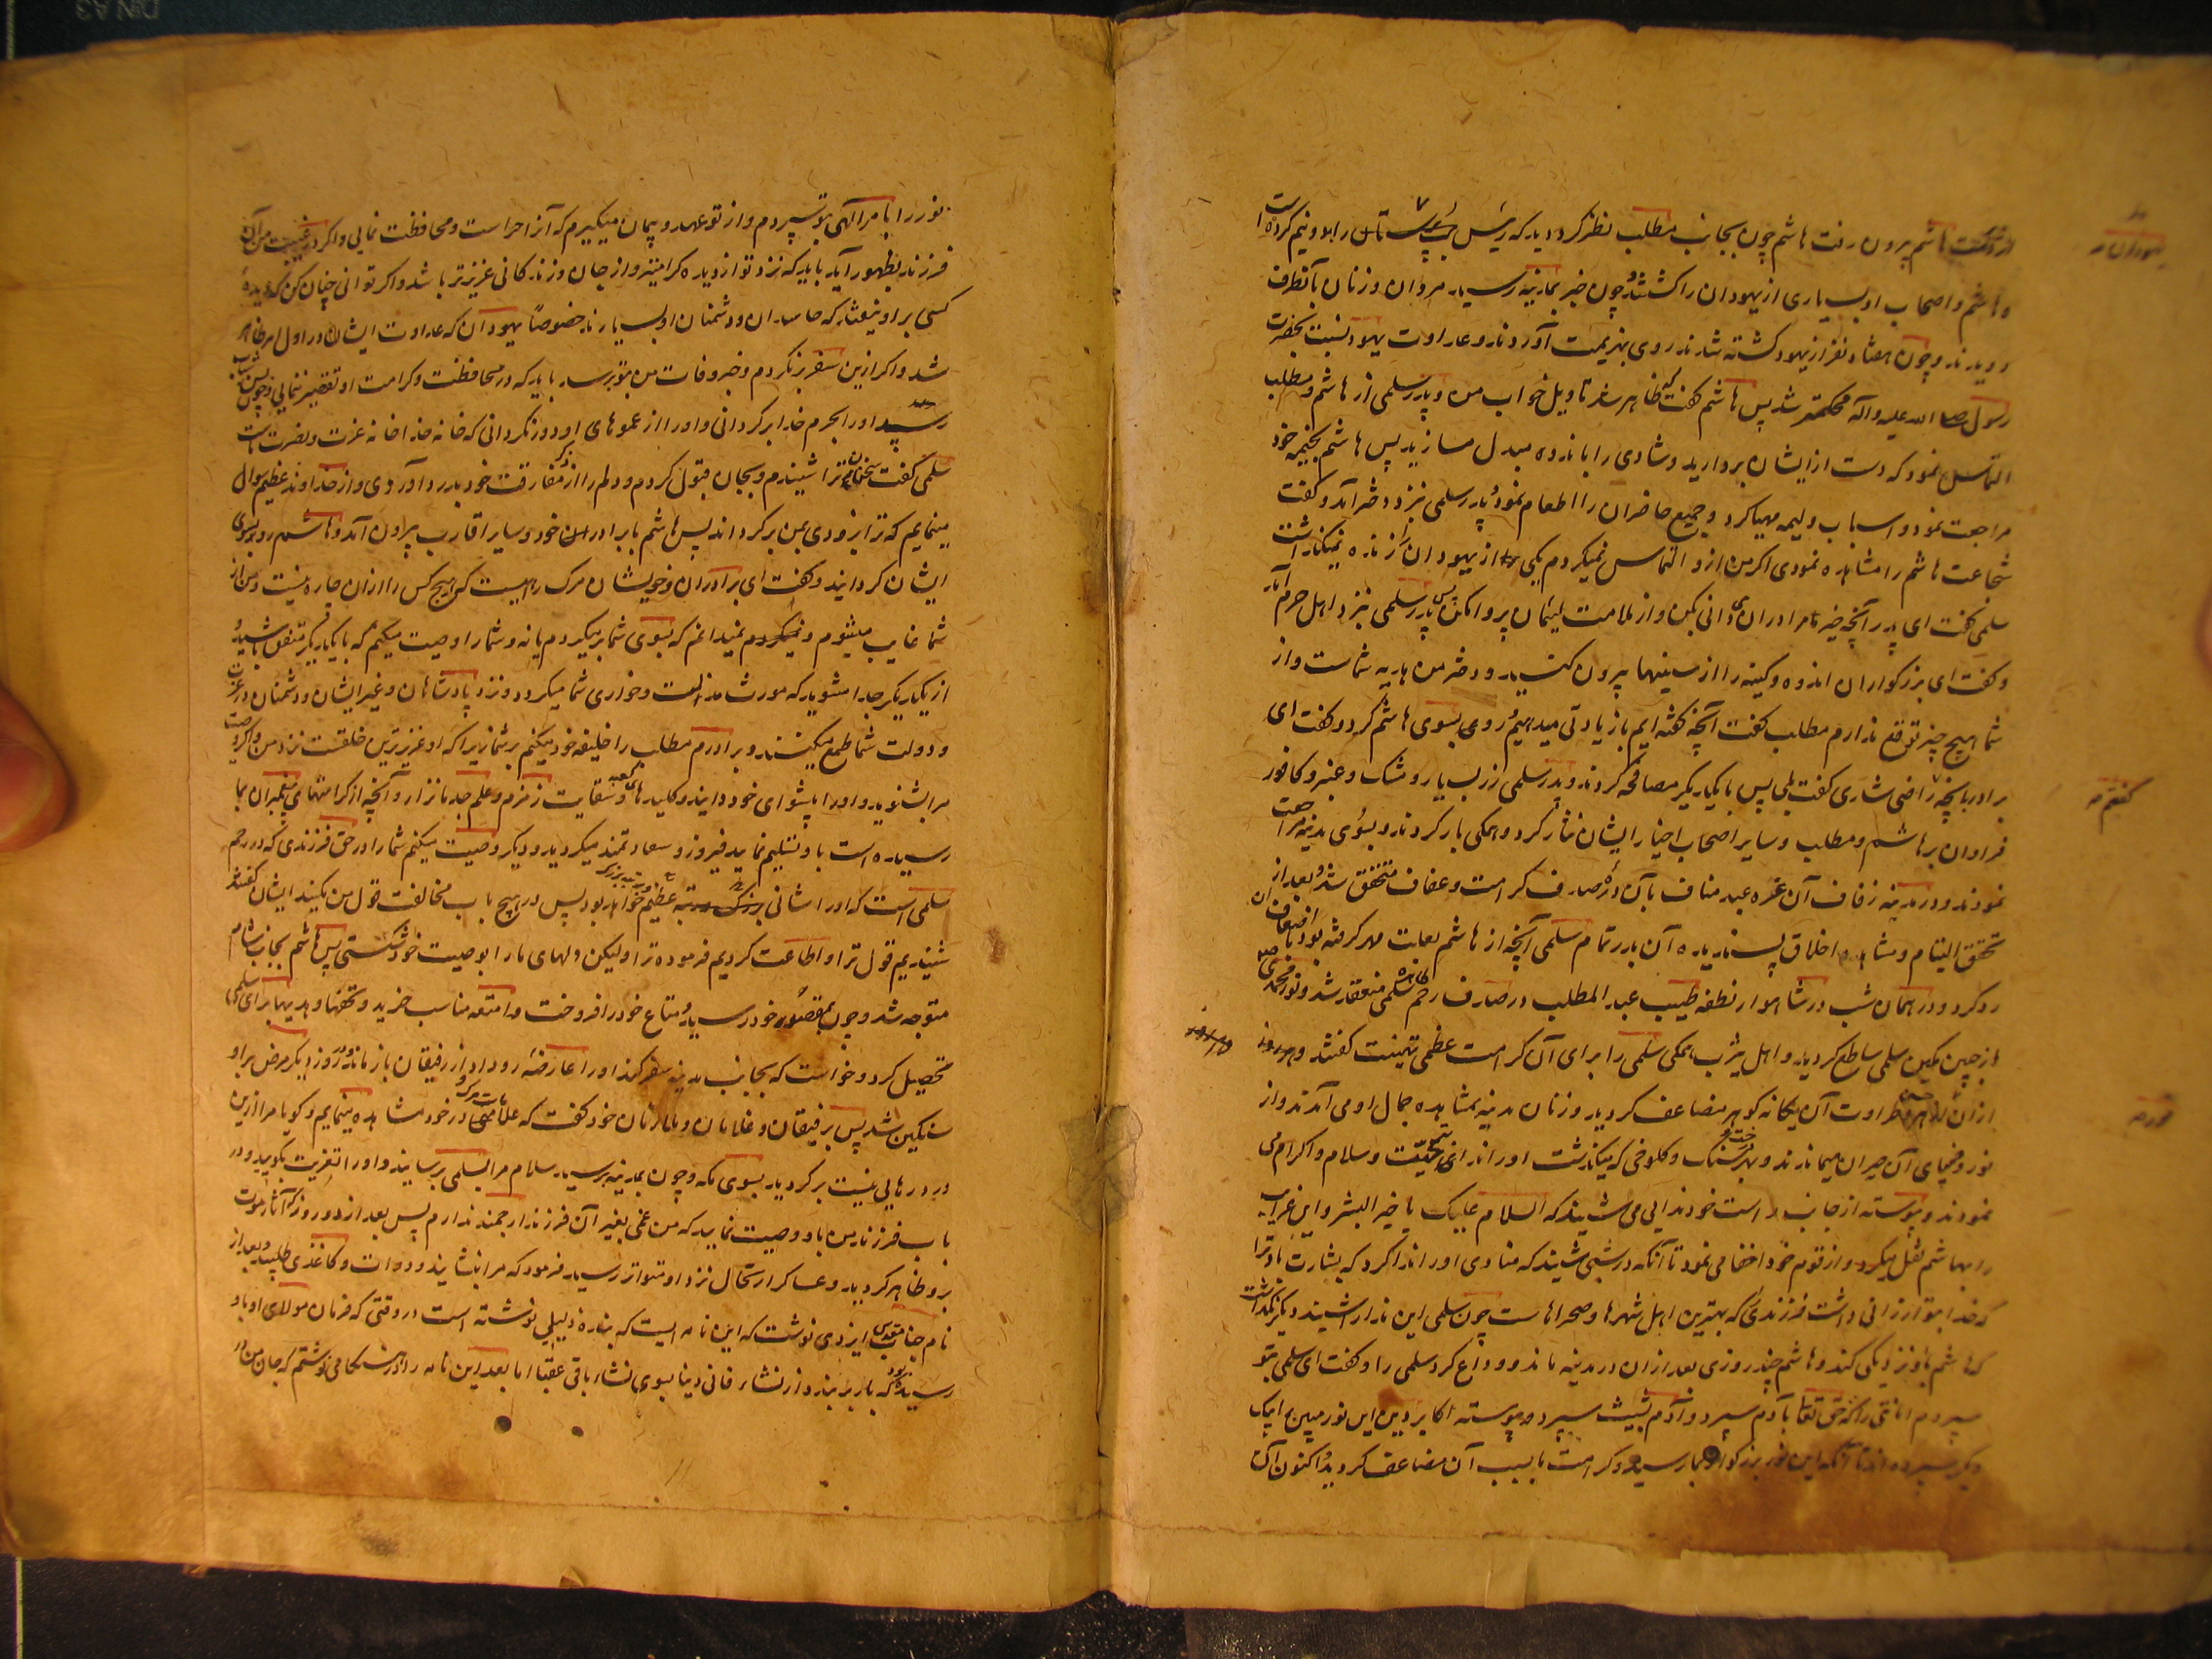 هاشم بیرون رفت هاشم چون بجانب مطلب نظر کرد دید که رئیس را بدو نیم کرده است
و هاشم و اصحاب او بسیاری از یهودان را کشتند و چون خبر بمدینه رسید مردان و زنان بآنطرف
دویدند و چون هفتاد نفر از یهود کشته شدند روی بهزیمت آوردند و عداوت یهود نسبت بحضرت
رسول صلی الله علیه وآله محکمتر شد پس هاشم گفت که ظاهر شد تاویل خواب من و پدر سلمی از هاشم و مطلب
التماس نمود که دست از ایشان بردارید و شادی را باندوه مبدل مسازید پس هاشم بخیمه خود
مراجعت نمود و اسباب ولیمه مهیا کرد و جمیع حاضران را اطعام نمود و پدر سلمی نزد دختر آمد و گفت
شجاعت هاشم را مشاهده نمودی اگر من ازو التماس نمیکردم یکی از یهودان را زنده نمیگذاشت
سلمی گفت ای پدر آنچه خیر مرا در آن دانی بکن و از ملامت لئیمان پروا مکن پس پدر سلمی نزد اهل حرم آمد
و گفت ای بزرگواران اندوه و کینه را از سینها بیرون کنید و دختر من هدیه شماست و از
شما هیچ چیز توقع ندارم مطلب گفت آنچه گفته ایم باز یادتی میدهیم و روی بسوی هاشم کرد و گفت ای
برادر بآنچه راضی شدی گفت بلی پس با یکدیگر مصافحه کردند و پدر سلمی زر بسیار و مشک و عنبر و کافور
فراوان بر هاشم و مطلب و سایر اصحاب اخیار ایشان نثار کرد و همگی بار کردند و بسوی مدینه مراجعت
نمودند و در مدینه زفاف آن غره عبد مناف بآن دره صدف کرامت و عفاف متحقق شد و بعد از
تحقق التیام و مشاهده اخلاق پسندیده آن بدر تمام سلمی آنچه از هاشم بعلت مهر گرفته بود باضعاف آن
رد کرد و در همان شب در شاهوار نطفه طیب عبد المطلب در صدف رحم طاهره سلمی منعقد شد و نور محمدی ص
از جبین مبین سلمی ساطع گردید و اهل یثرب همگی سلمی را برای آن کرامت عظمی تهنیت گفتند و
از آن طراوت آن یگانه گوهر مضاعف گردید و زنان مدینه بمشاهده جمال او می آمدند و از
نور و ضیای آن حیران میماندند و بهر درخت و سنگ و کلوخی که میگذشت او را ندای تحیت و سلام و اکرام می
نمودند و پیوسته از جانب راست خود ندایی می شنید که السلام علیک یا خیر البشر و این غرایب
را بهاشم نقل میکرد و از قوم خود اخفا می نمود تا آنکه در شبی شنید که منادی او را ندا کرد که بشارت باد ترا
که خدا بتو ارزانی داشت فرزندی را که بهترین اهل شهرها و صحراهاست چون سلمی این ندا را شنید دیگر نگذاشت
که هاشم باو نزدیکی کند و هاشم چند روزی بعد از آن در مدینه ماند و وداع کرد سلمی را و گفت ای سلمی بتو
سپردم امانتی را که حق تعالی بآدم سپرد و آدم بشیث سپرد و پیوسته اکابر دین این نور مبین را بیک
دیگر سپرده اند تا آنکه این نور بزرگوار بما رسید و کرامت ما بسبب آن مضاعف گردید و اکنون آن
نور را بامر الهی بتو سپردم و از تو عهد و پیمان میگیرم که آنرا حراست و محافظت نمایی و اگر در غیبت من آن
فرزند بظهور آید باید که نزد تو از دیده گرامیتر و از جان و زندگانی عزیزتر باشد و اگر توانی چنان کن که دیده
کسی بر او نیفتد که حاسدان و دشمنان او بسیارند خصوصاً یهودان که عداوت ایشان در اول امر ظاهر
شد و اگر ازین سفر برنگردم و خبر وفات من بتو برسد باید که در محافظت و کرامت او تقصیر ننمایی و چون بسن شباب
رسید او را بحرم خدا برگردانی و او را از عموهای او دور نگردانی که خانه خدا خانه عزت و نصرت ماست
سلمی گفت سخنان ترا شنیدم و بجان قبول کردم و دلم را از مفارقت خود بدرد آوردی و از خداوند عظیم سوال
مینمایم که ترا بزودی بمن برگرداند پس هاشم با برادران خود و سایر اقارب بیرون آمد و هاشم رو بسوی
ایشان گردانید و گفت ای برادران و خویشان مرگ راهیست که هیچ کس را از آن چاره نیست و من از
شما غایب میشوم و نمیدانم که بسوی شما برمیگردم یا نه و شما را وصیت میکنم که با یکدیگر متفق باشید و
از یکدیگر جدا مشوید که مورث مذلت و خواری شما میگردد و نزد پادشاهان و غیر ایشان و دشمنان در عزت
و دولت شما طمع میکنند و برادرم مطلب را خلیفه خود میکنم بر شما زیرا که او عزیزترین خلقست نزد من و اگر وصیت
مرا بشنوید و او را پیشوای خود دانید و کلیدهای کعبه و سقایت زمزم و علم جد ما نزار و آنچه از کرامتهای پیغمبران بما
رسیده است باو تسلیم نمایید فیروز و سعادتمند میگردید و دیگر وصیت میکنم شما را در حق فرزندی که در رحم
سلمی است که او را شانی عظیم و مرتبه بزرگ خواهد بود پس در هیچ باب مخالفت قول من مکنید ایشان گفتند
شنیدیم قول ترا و اطاعت کردیم فرموده ترا ولیکن دلهای ما را بوصیت خود شکستی پس هاشم بجانب شام
متوجه شد و چون بمقصد خود رسید و متاع خود را فروخت و امتعه مناسب خرید و تحفها و هدیهها برای سلمی
تحصیل کرد و خواست که بجانب مدینه سفر کند او را عارضه رو داد از رفیقان باز ماند و در روز دیگر مرض بر او
سنگین شد پس برفیقان و غلامان و ملازمان خود گفت که علامت مرگ در خود مشاهده مینمایم و گویا مرا ازین
درد رهایی نیست برگردید بسوی مکه و چون بمدینه برسید سلام مرا بسلمی برسانید و او را تعزیت بگویید و در
باب فرزند من باو وصیت نمایید که من غمی بغیر آن فرزند ارجمند ندارم پس بعد از دو روز که آثار موت
برو ظاهر گردید و عساکر ارتحال نزد او متواتر رسید فرمود که مرا بنشانید و دوات و کاغذی طلبید و بعد از
نام جناب مقدس ایزدی نوشت که این نامه ایست که بنده ذلیلی نوشته است در وقتی که فرمان مولای او باو
رسیده بود که بار بربندد از نشاء فانی دنیا بسوی نشاء باقی عقبا اما بعد این نامه را در هنگامی نوشتم که جان من در
یهودان
گفتم